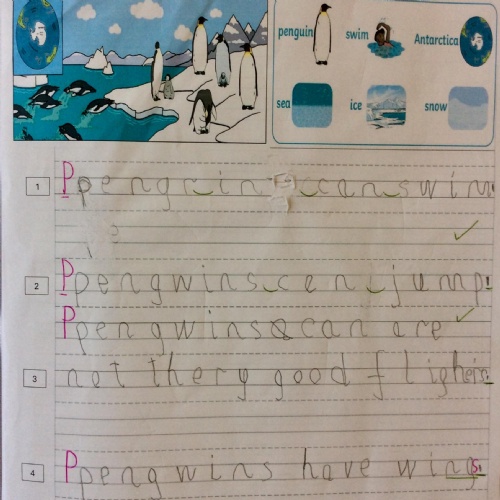 penguin swim Antarctica
sea ice snow
1 Ppengwin can swim
2 Ppengwins cen jump!
Ppengwins can are
3 not thery good flighers.
4 Ppengwins have wings.